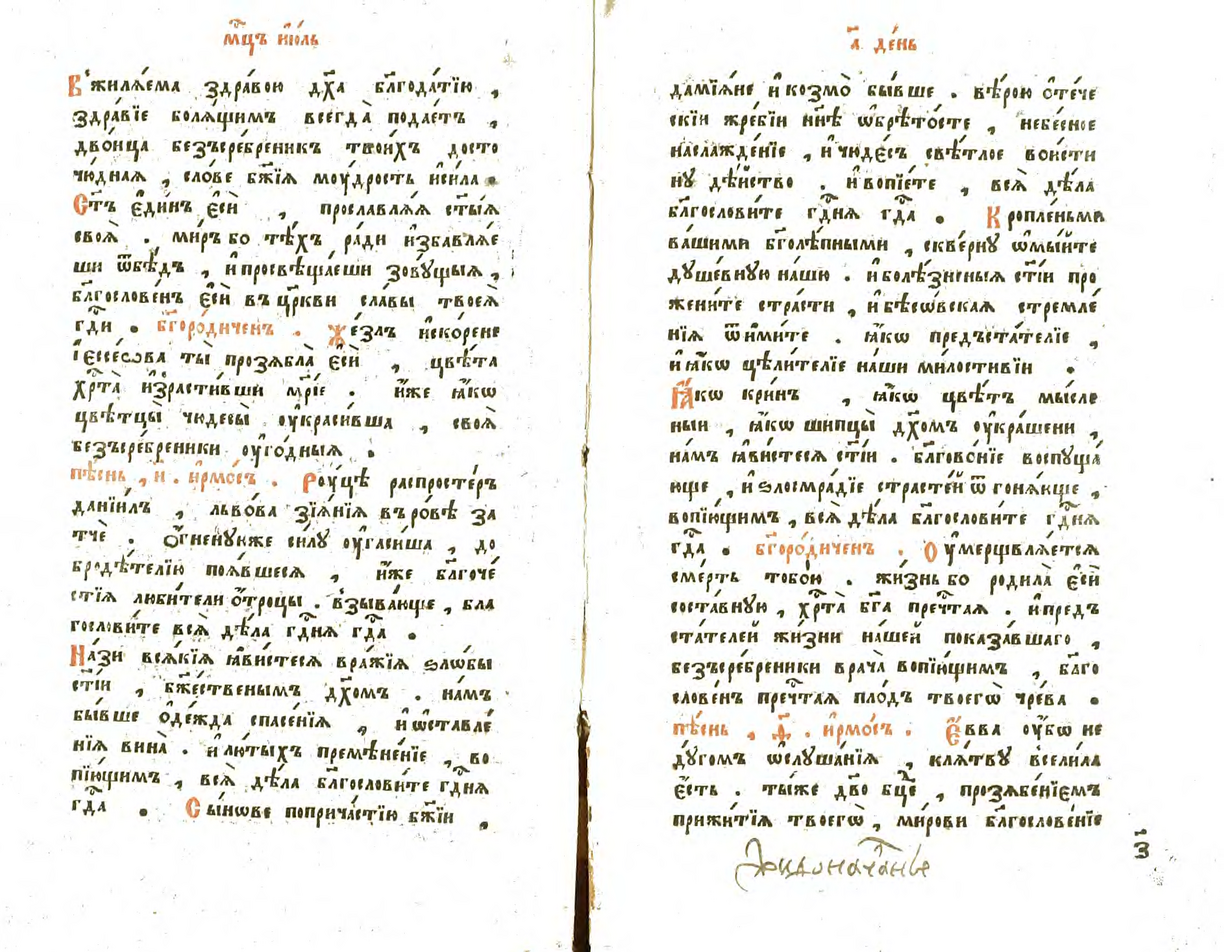 мц҃ъ ию́ль
В҆жиля́ема здра́вою дх҃а блг҃ода́тїю ,
здра́вїе боля́щимъ всегда̀ подае́тъ ,
двоица безъсре́бреникъ твои́хъ досто
чю́дная , сло́ве бж҃їя моу́дрость и҆си́ла .
Ст҃ъ є҆ди́нъ є҆сѝ , прославля́я ст҃ы́я
своѧ̀ . ми́ръ бо тѣ́хъ ра́ди и҆збавля́е
ши ѿбѣ́дъ , и҆просвѣща́еши зовꙋ́щыя ,
блг҃ослове́нъ є҆сѝ въ цр҃кви сла́вы твоеѧ̀
гд҃и . бг҃оро́диченъ . Же́злъ и҆скорене
І҆ессе́ова ты̀ прозябла̀ є҆сѝ , цвѣ́та
хр҃та̀ и҆зрасти́вши мр҃їе . и҆́же ꙗ҆́кѡ
цвѣтцы̀ чюдесы̀ оу҆краси́вша , своѧ̀
безъсре́бреники оу҆го́дныя .
пѣ́снь , и҃ . и҆рмо́съ . Роу́цѣ распросте́ръ
данїи́лъ , льво́ва зїя́нїя въро́вѣ за
тчѐ . О҆́гненꙋюже си́лꙋ оу҆гаси́ша , до
бродѣ́телїю поя́вшеся , и҆́же блг҃оче́
стїя люби́тели ѻ҆́троцы . взыва́юще , бла
гослови́те всѧ̀ дѣ́ла гд҃ня гд҃а .
На́зи вся́кїя ꙗ҆ви́стеся вра́жїя ѕло́бы
ст҃і́и , бж҃е́ственымъ дх҃омъ . на́мъ
бы́вше ѻ҆де́жда спасе́нїя , и҆ѡ҆ставле́
нїя вина̀ . и҆лю́тыхъ премѣне́нїе , во
пїю́щимъ , всѧ̀ дѣ́ла блг҃ослови́те гд҃ня
гд҃а . Сы́нѡве поприча́стїю бж҃їи ,
а҃ де́нь
дамїя́не и҆ козмо̀ бы́вше . вѣ́рою ѻ҆те́че
скїи жре́бїи нн҃ѣ ѡ҆брѣто́сте , небе́сное
наслажде́нїе , и҆ чюде́съ свѣ́тлое вои́сти
нꙋ дѣ́йство . и҆ вопїе́те , всѧ̀ дѣ́ла
блг҃ослови́те гд҃ня гд҃а . Кропле́ньми
ва́шими бг҃олѣ́пными , скве́рнꙋ ѡ҆мы́йте
дꙋше́внꙋю на́шю . и҆ болѣ́зненыя ст҃і́и про
жени́те стра́сти , и҆ бѣсѡ́вская стремле́
нїя ѿими́те . ꙗ҆́кѡ предъста́телїе ,
и҆ ꙗ҆́кѡ цѣли́телїе на́ши ми́лостивїи .
Ꙗ҆́кѡ кри́нъ , ꙗ҆́кѡ цвѣ́тъ мы́сле
ныи , ꙗ҆́кѡ шипцы̀ дх҃омъ оу҆кра́шени ,
на́мъ ꙗ҆ви́стеся ст҃і́и . благово́нїе воспꙋща́
юще , и҆ ѕлосмра́дїе страсте́й ѿ гоня́юще ,
вопїю́щимъ , всѧ̀ дѣ́ла блг҃ослови́те гд҃ня
гд҃а . бг҃оро́диченъ . Оумерщвля́ется
сме́рть тобо́ю . жи́знь бо родила̀ є҆сѝ
соста́внꙋю , хр҃та̀ бг҃а преч҃тая . и҆ предъ
ста́телей жи́зни на́шей показа́вшаго ,
безъсре́бреники врача̀ вопїю́щимъ , баго
слове́нъ преч҃тая пло́дъ твоегѡ̀ чре́ва .
пѣ́снь , ѳ҃ . и҆рмо́съ . Є҆́вва оу҆́бѡ не
дꙋ́гомъ ѡ҆слꙋша́нїя , кля́твꙋ всели́ла
є҆́сть . ты́же дв҃о бц҃е , прозябе́нїемъ
прижи́тїя твоегѡ̀ , ми́рови благослове́нїе
з҃